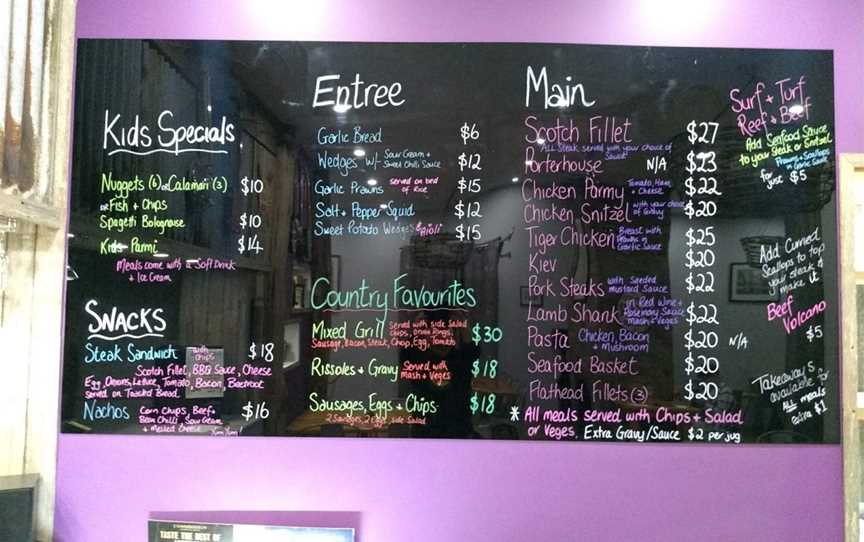 Kids Specials
Nuggets (6) or Calamari (3) $10
or Fish + Chips
Spagetti Bolognaise $10
Kids Parmi $14
Meals come with a Soft Drink
+ Ice Cream
SNACKS
Steak Sandwich with chips $18
Scotch Fillet, BBQ Sauce, Cheese
Egg, Onions, Lettuce, Tomato, Bacon, Beetroot
served on Toasted Bread
Nachos Corn Chips, Beef + $16
Bean Chilli, Sour Cream
+ Melted Cheese
Yum Yum!
Entree
Garlic Bread $6
Wedges w/ Sour Cream + Sweet Chilli Sauce $12
Garlic Prawns served on bed of Rice $15
Salt + Pepper Squid $12
Sweet Potato Wedges + Aioli $15
Country Favourites
Mixed Grill Served with side Salad $30
chips, Onion Rings,
Sausage, Bacon, Steak, Chop, Egg, Tomato
Rissoles + Gravy Served with mash + Veges $18
Sausages, Eggs + Chips $18
2 Sausages, 2 Eggs, side Salad
Main
Scotch Fillet $27
ALL Steak served with your choice of Sauce
Porterhouse N/A $23
Chicken Parmy Tomato, Ham + Cheese $22
Chicken Snitzel with your choice of Gravy $20
Tiger Chicken Breast with Prawns in Garlic Sauce $25
Kiev $20
Pork Steaks with Seeded mustard Sauce $22
Lamb Shank in Red Wine + Rosemary Sauce mash + Veges $22
Pasta Chicken, Bacon + Mushroom $20 N/A
Seafood Basket $20
Flathead Fillets (3) $20
* All meals served with Chips + Salad
or Veges. Extra Gravy/Sauce $2 per jug
Surf + Turf
Reef + Beef
Add Seafood Sauce
to your Steak or Snitzel
Prawns + Scallops
in Garlic Sauce
for just $5
Add Curried
Scallops to top
your steak +
make it
Beef
Volcano
$5
Takeaways
available for
ALL meals
extra $1
TASTE THE BEST OF